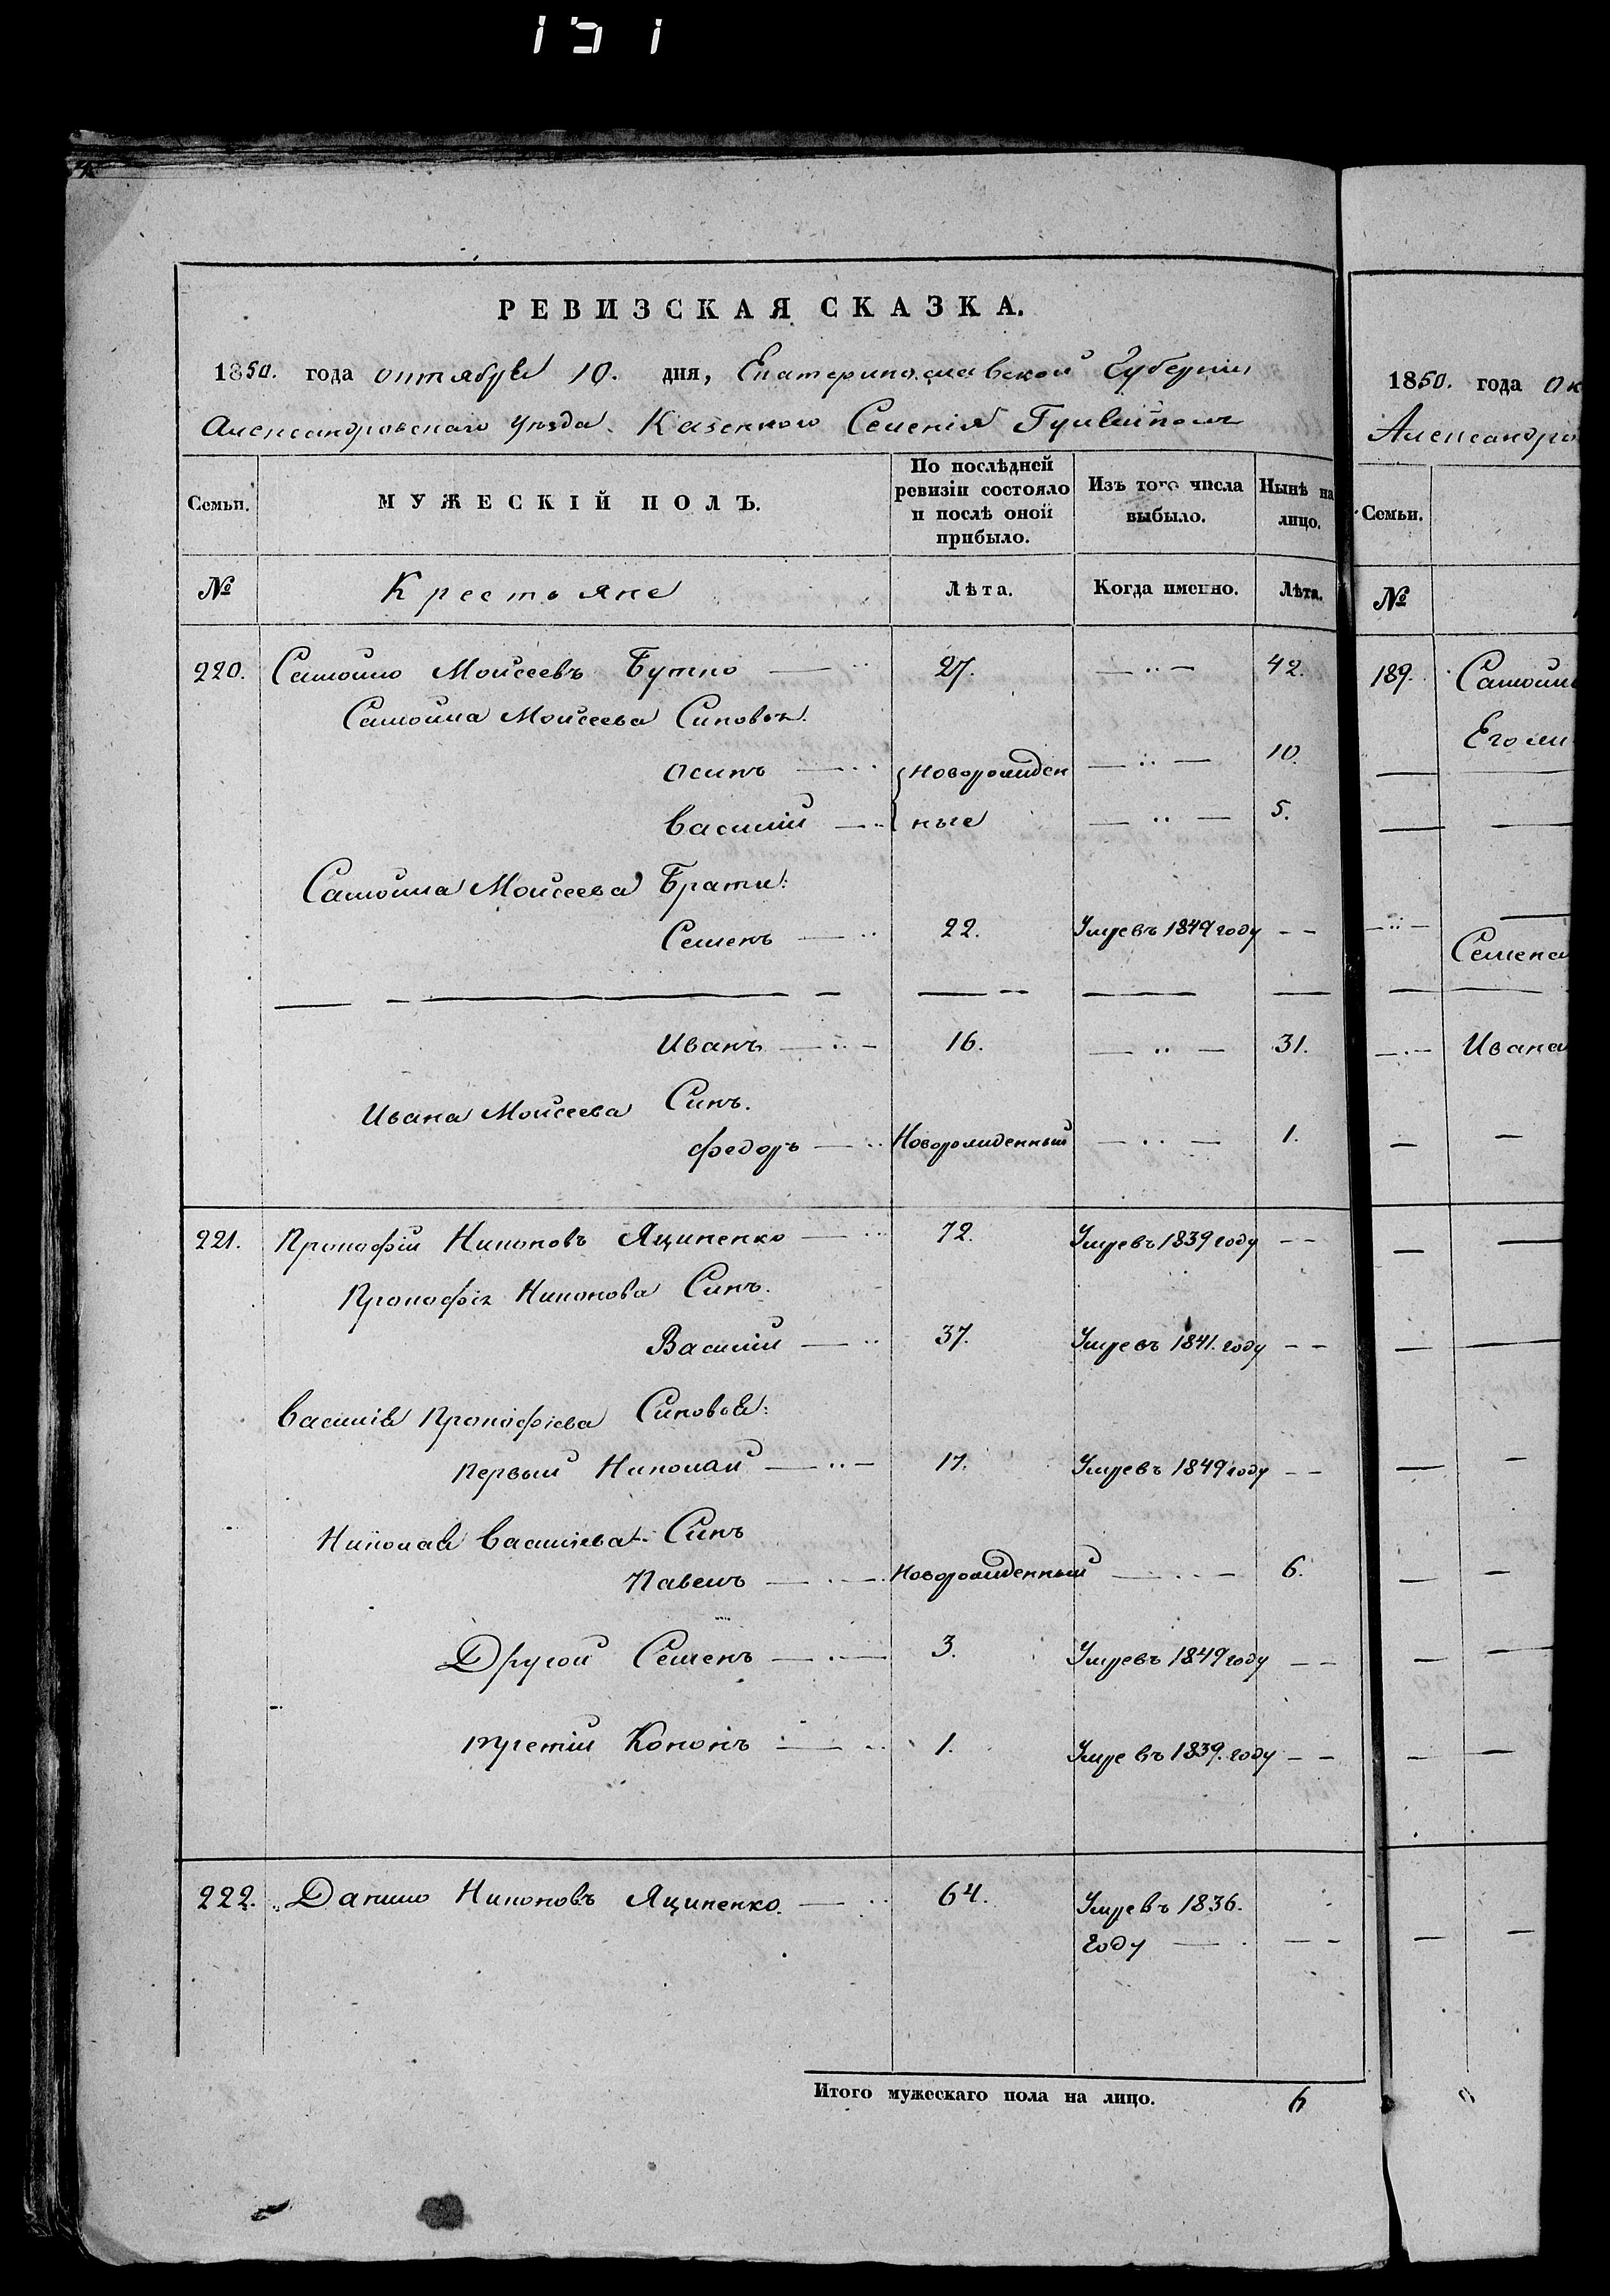 151
РЕВИЗСКАЯ СКАЗКА.
1850. года октября 10. дня, Екатеринославской Губернiи
Александровскаго уѣзда. Казенного Селенiя Гуляйполя
Семьи. МУЖЕСКIЙ ПОЛЪ. По послѣдней ревизiи состояло и послѣ оной прибыло. Изъ того числа выбыло. Нынѣ на лицо.
№ Крестьяне Лѣта. Когда именно. Лѣта.
220. Самойло Моисеевъ Бутко 27. 42.
Самойла Моисеева Синовья.
Осипъ Новорожден 10.
Василiй ные 5.
Самойла Моисеева Братя:
Семенъ 22. Умре въ 1849 году
Иванъ 16. 31.
Ивана Моисеева Синъ.
Федоръ Новорожденный 1.
221. Прокофiй Никоновъ Яциненко 72. Умре въ 1839 году
Прокофiя Никонова Синъ.
Василiй 37. Умре въ 1841. году
Василiя Прокофiева Синовья:
Первый Николай 17. Умре въ 1849 году
Николая Василiева Синъ
Павелъ Новорожденный 6.
Другой Семенъ 3. Умре въ 1849 году
Третiй Кононъ 1. Умре въ 1839. году
222. Данило Никоновъ Яциненко. 64. Умре въ 1836.
году
Итого мужескаго пола на лицо. 6
1850. года Ок
Александро
Семьи.
№
189. Самойл
Его
Семена
Ивана